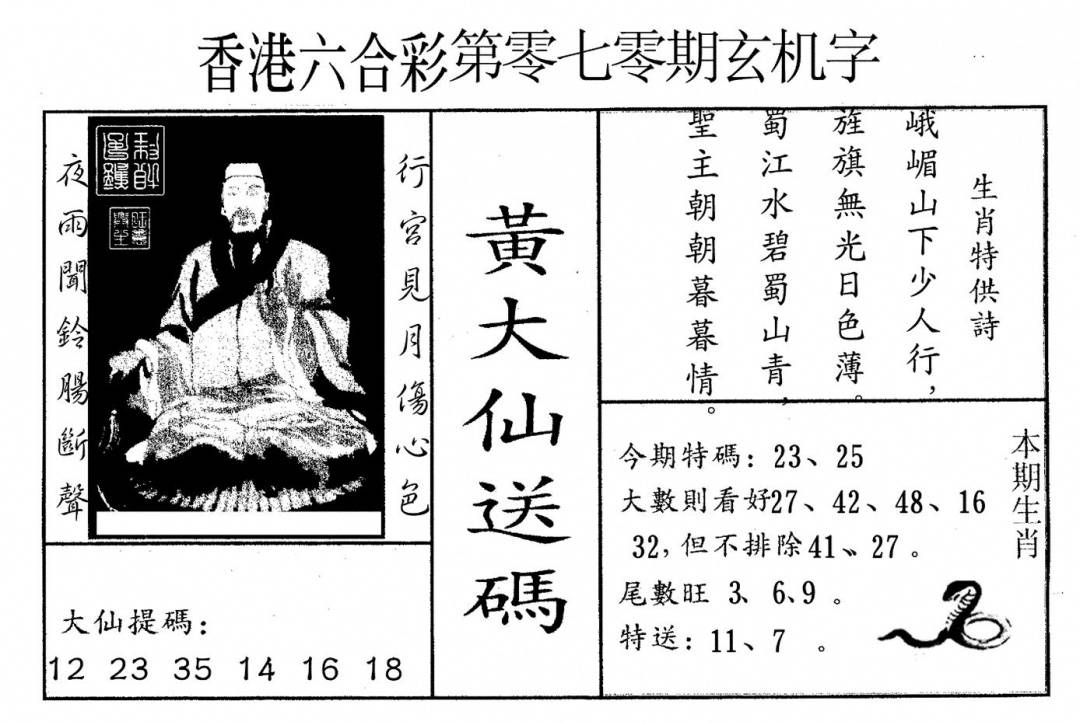 香港六合彩第零七零期玄机字
行宮見月傷心色
夜雨聞鈴腸斷聲
大仙提碼：
12 23 35 14 16 18
黃大仙送碼
生肖特供詩
峨嵋山下少人行，
旌旗無光日色薄。
蜀江水碧蜀山青，
聖主朝朝暮暮情。
本期生肖
今期特碼：23、25
大數則看好27、42、48、16
32，但不排除41、27。
尾數旺 3、6、9 。
特送：11、7 。